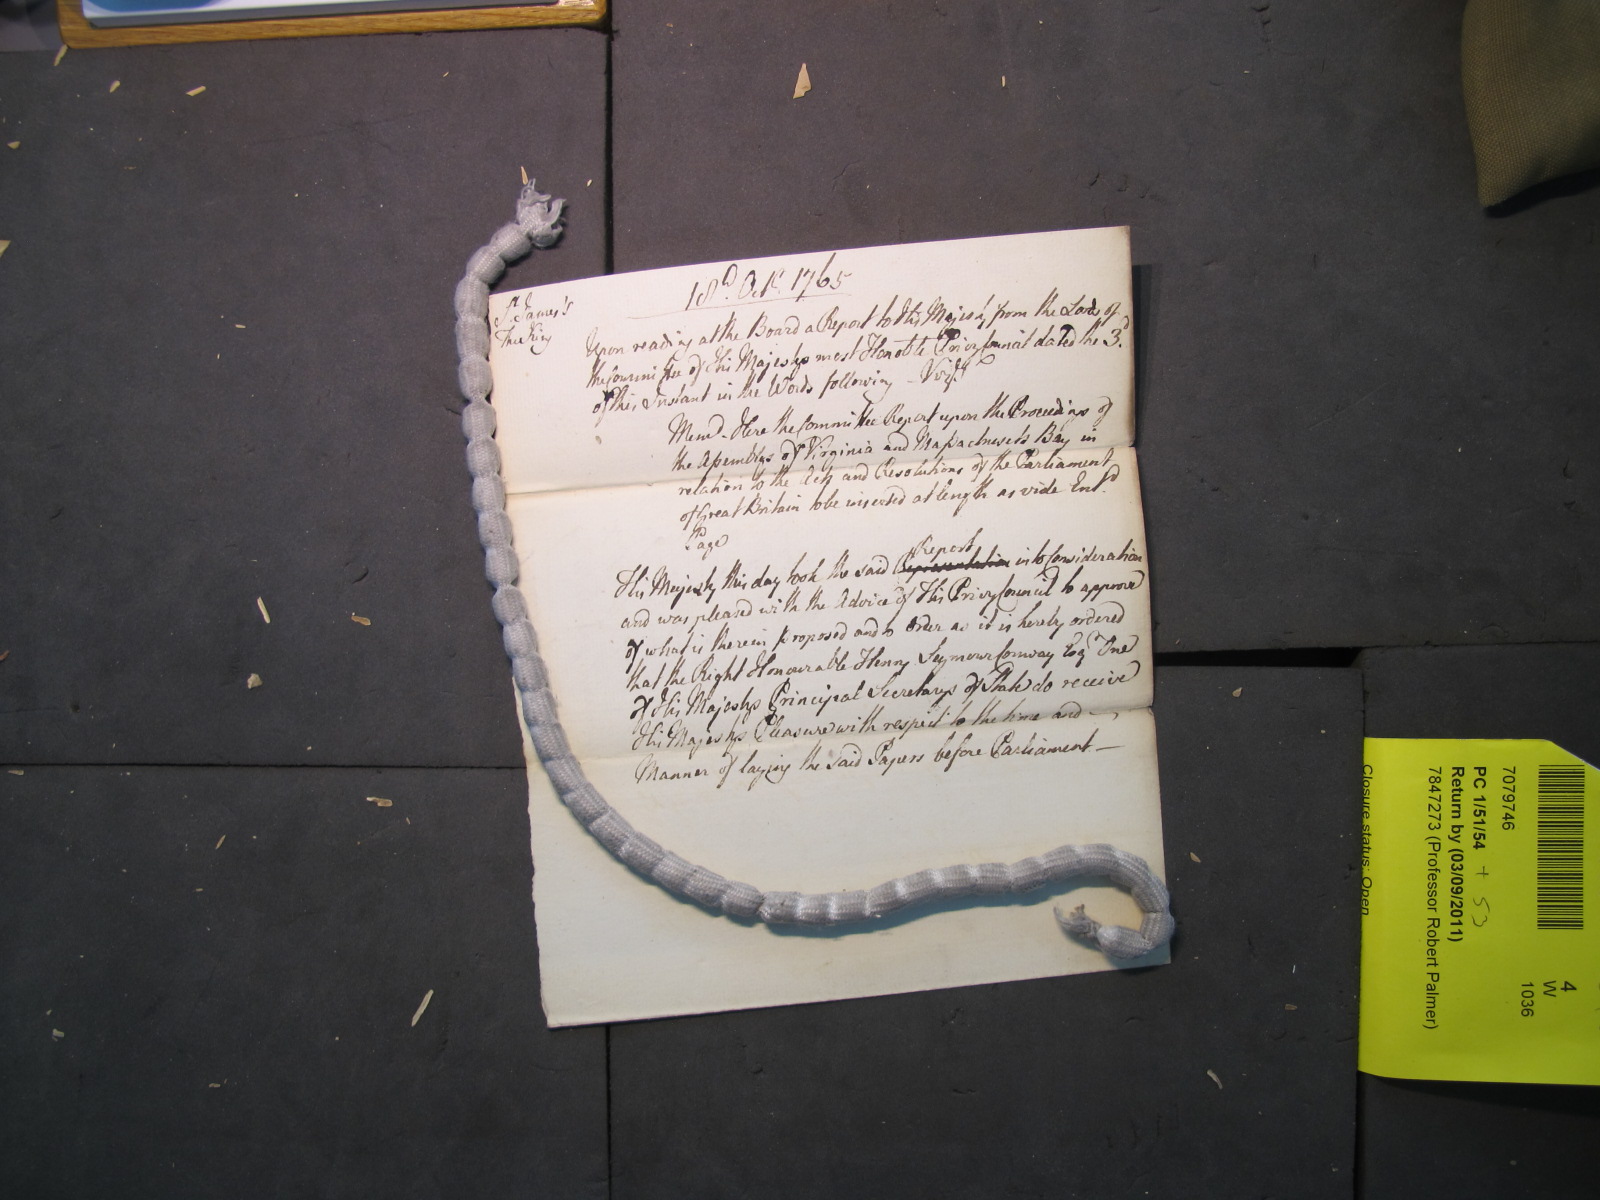 18.d Oct.r 1765
St. James's
The King
Upon reading at the Board a Report to His Majesty from the Lords of
the Committee of His Majestys most Honoble Privy Council dated the 3.d
of this Instant in the Words following - Vizt.
Memd. Here the Committee Report upon the Proceedings of
the Assemblys of Virginia and Massachusets Bay in
relation to the Acts and Resolutions of the Parliament
of Great Britain to be inserted at length as vide Entd.
Page
Report
His Majesty this day took the said Representation into Consideration
and was pleased with the Advice of His Privy Council to approve
of what is therein proposed and to Order as it is hereby ordered
that the Right Honourable Henry Seymour Conway Esqr. One
of His Majestys Principal Secretarys of State do receive
His Majestys Pleasure with respect to the time and -
Manner of laying the said Papers before Parliament —
4
W
1036
7079746
PC 1/51/54 + 53
Return by (03/09/2011)
7847273 (Professor Robert Palmer)
Closure status: Open